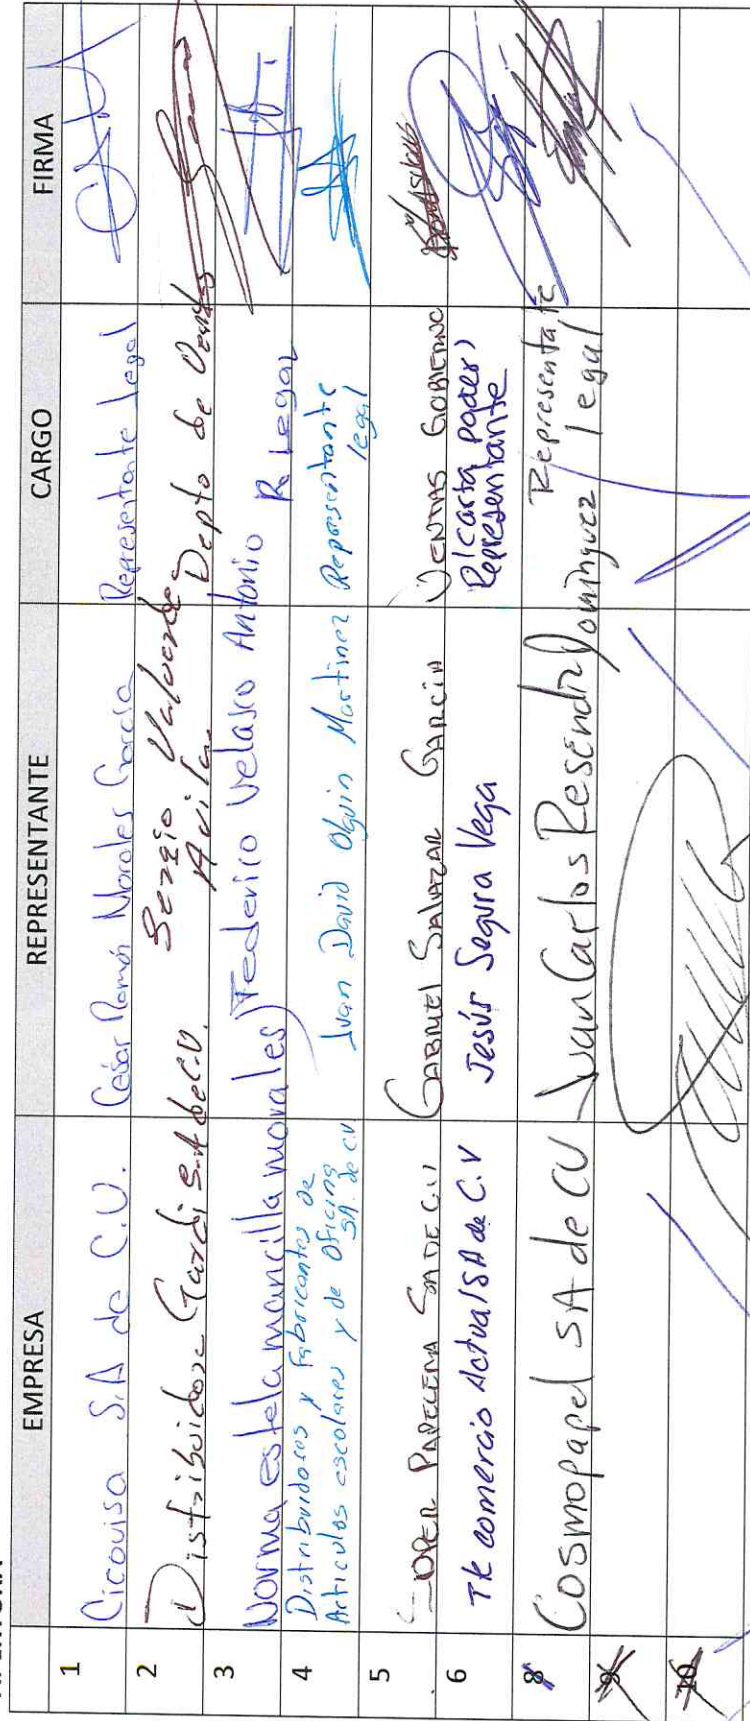 EMPRESA REPRESENTANTE CARGO FIRMA
1 Cicovisa S.A de C.V. César Román Morales García Representante legal
2 Distribuidora Gardi S.A de C.V. Sergio Valverde Avila Depto de Ventas
3 Norma estela mancilla morales Federico Velasco Antonio R. Legal
4 Distribuidores y Fabricantes de
Articulos escolares y de Oficina
SA. de CV Ivan David Olguin Martinez Representante
legal
5 SOPER PAPELERA SA DE C.V GABRIEL SALAZAR GARCIA VENTAS GOBIERNO
6 TK comercio Actual SA de C.V Jesús Segura Vega (carta poder)
Representante
8 Cosmopapel SA de CV Juan Carlos Resendiz Domínguez Representate
legal
9
10